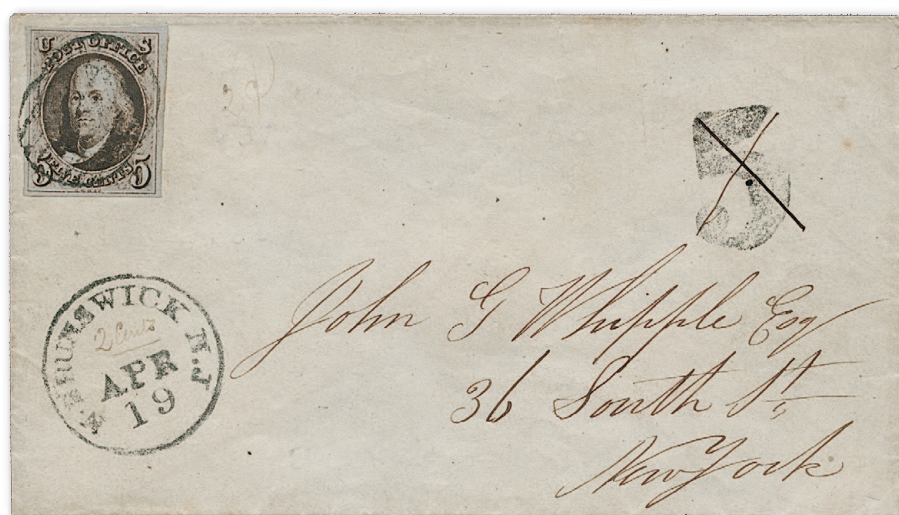 U S
POST OFFICE
5 FIVE CENTS 5
5
N. BRUNSWICK N.J
2 Cents
APR
19
John G Whipple Esq
36 South St.
New York